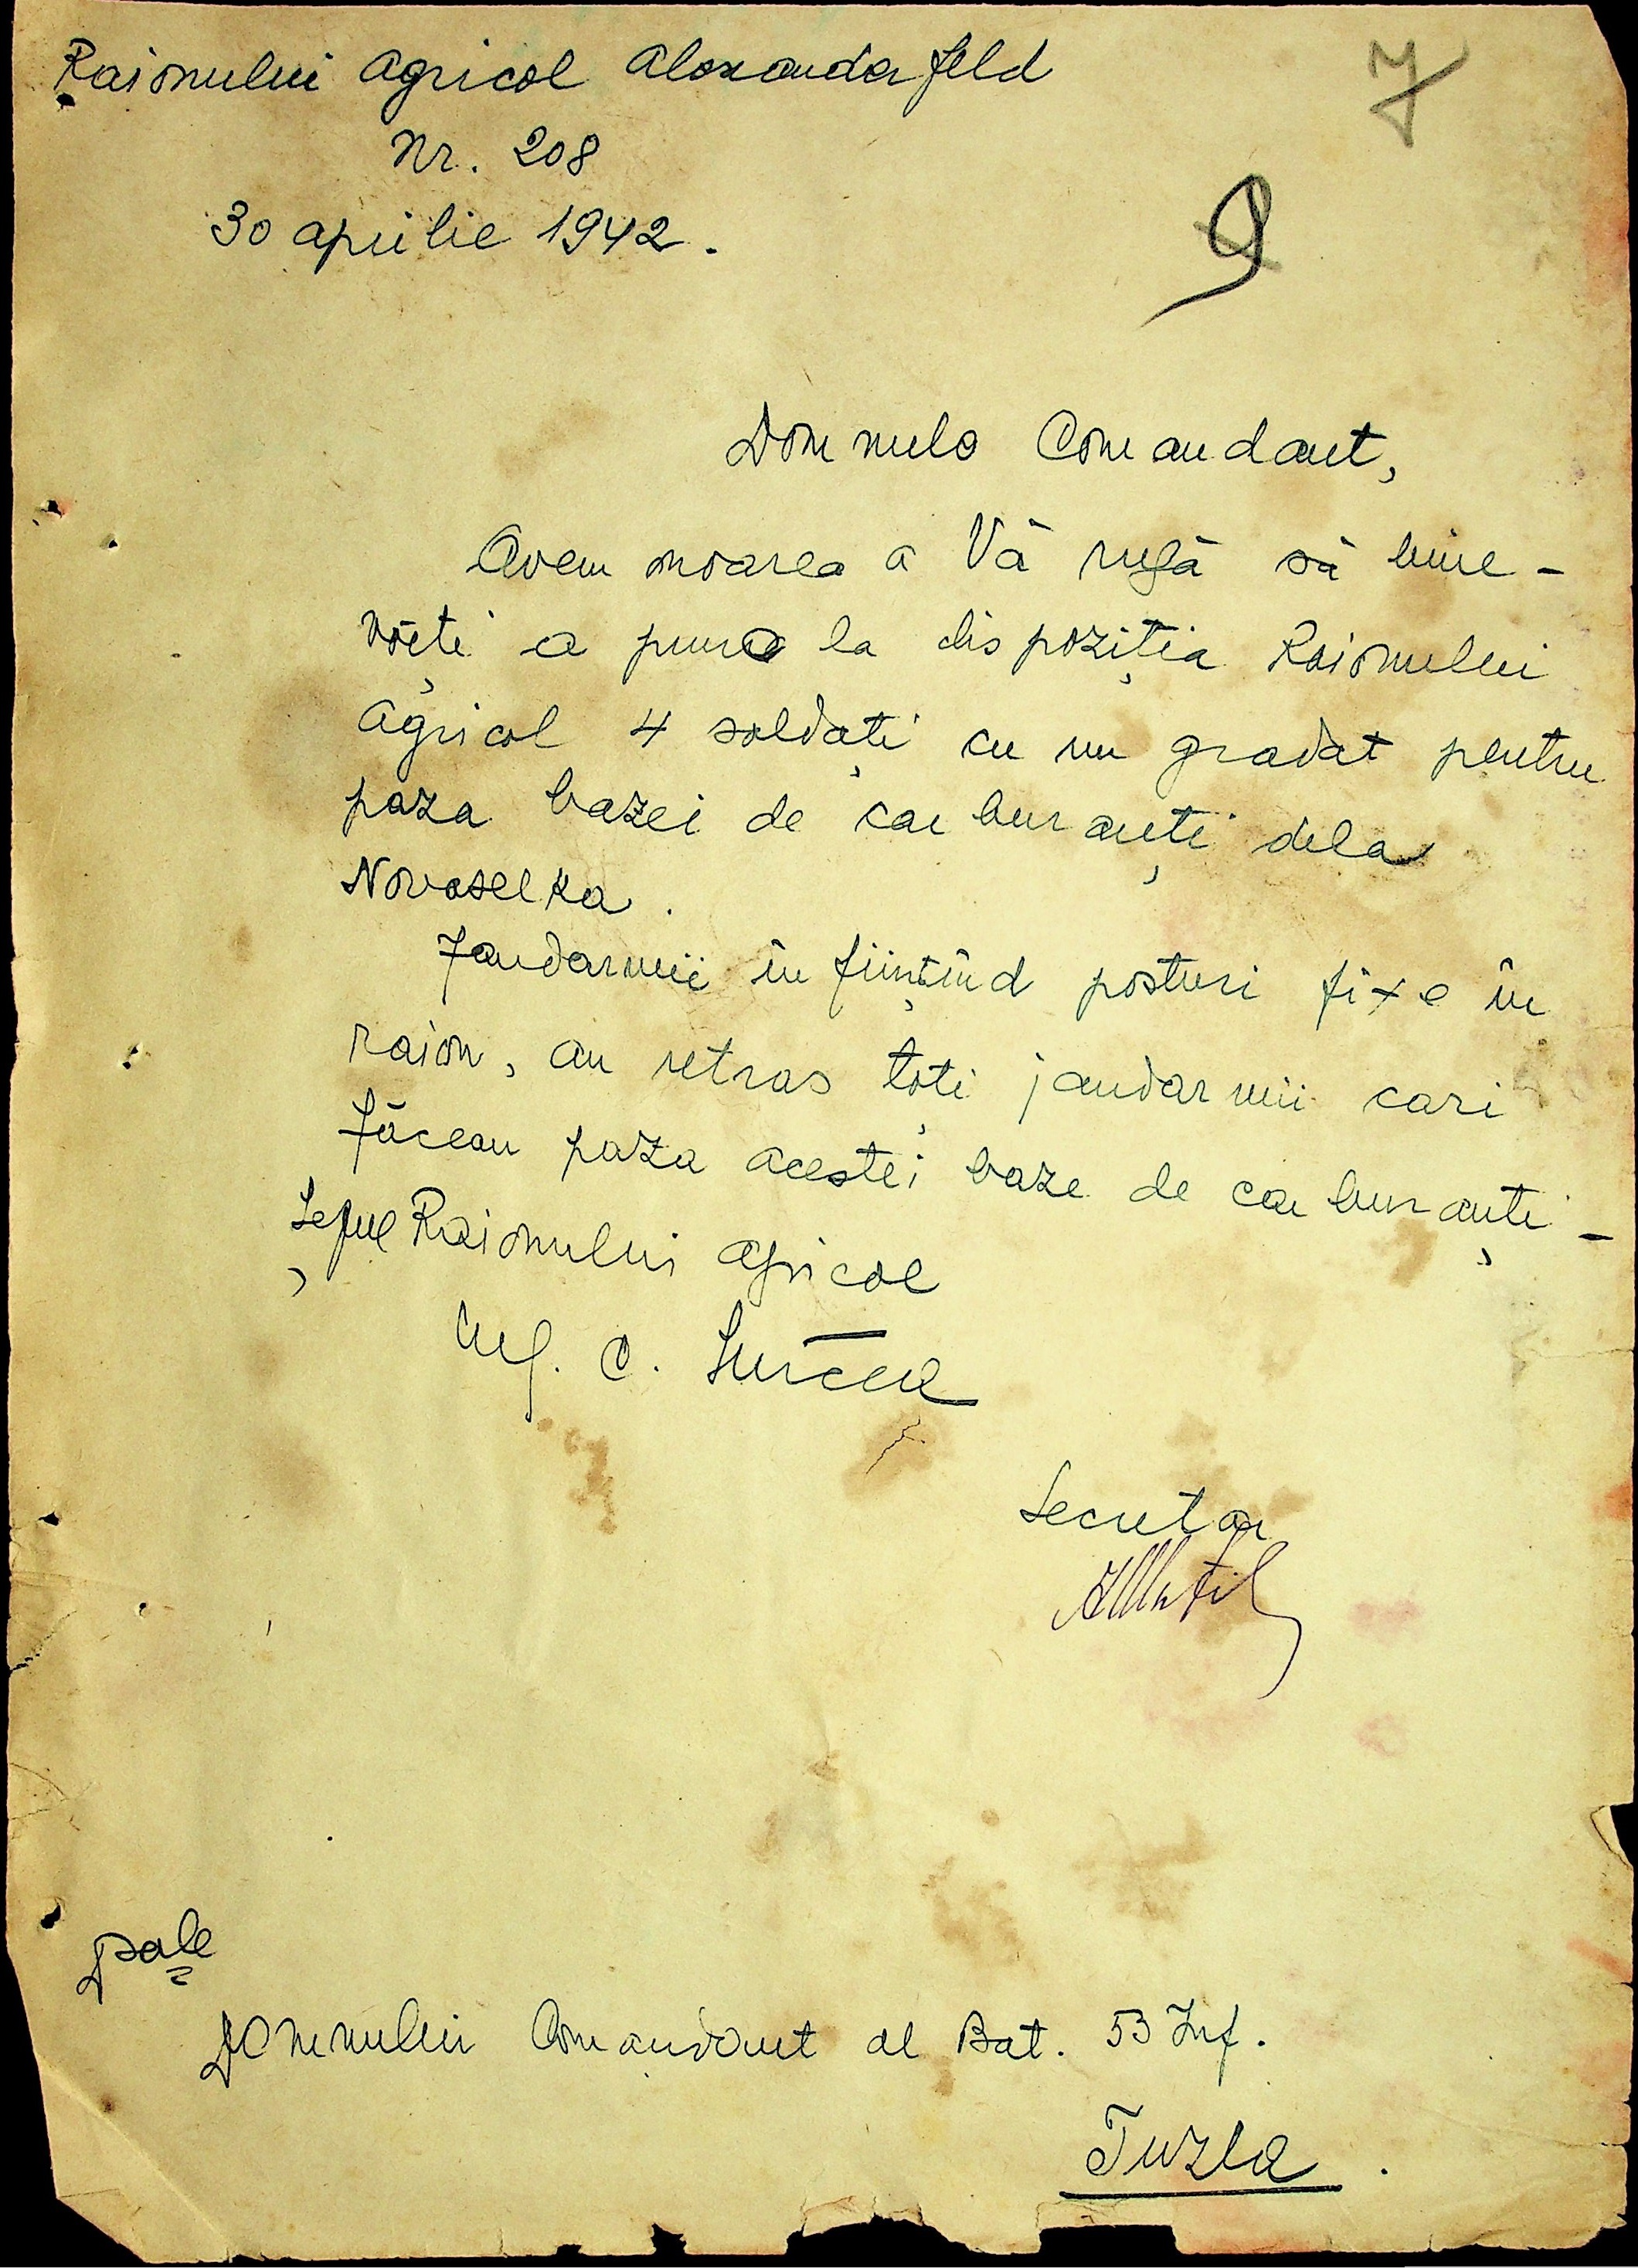 Raionului Agricol Alexanderfeld
7
Nr. 208
30 aprilie 1942.
9
Domnule Comandant,
Avem onoarea a Vă rugă să bine-
voiți a pune la dispoziția Raionului
Agricol 4 soldați cu un gradat pentru
paza bazei de carburanți dela
Novoselka.
Jandarmii înființînd posturi fixe în
raion, au retras toți jandarmii cari
făceau paza acestei baze de carburanți -
Șeful Raionului Agricol
Ing. C.
Secretar
Dsale
Domnului Comandant al Bat. 53 Inf.
Tuzla.